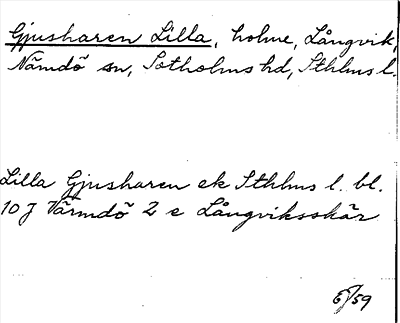 Gjusharen Lilla, holme, Långvik,
Nämdö sn, Sotholms hd, Sthlms l.
Lilla Gjusharen ek Sthlms l. bl.
10 J Värmdö 2 e Långviksskär
5/59